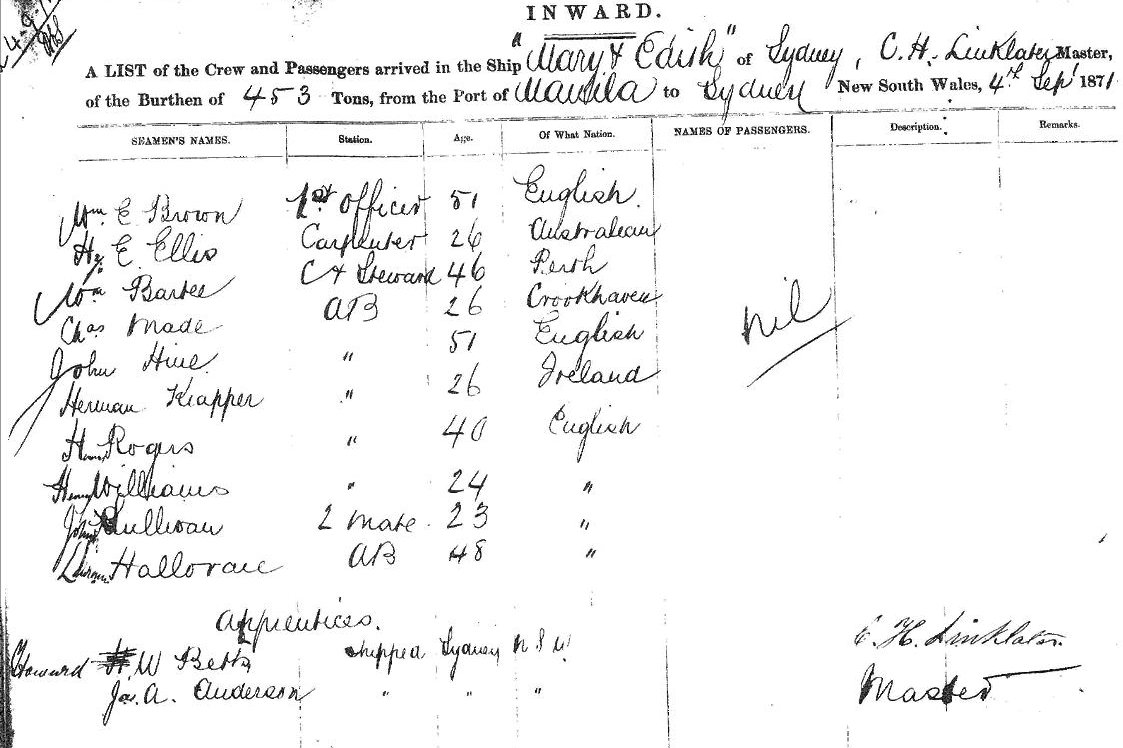 INWARD.
A LIST of the Crew and Passengers arrived in the Ship "Mary & Edith" of Sydney, C. H. Linklater Master,
of the Burthen of 453 Tons, from the Port of Manila to Sydney New South Wales, 4th Sep 1871
SEAMEN'S NAMES. Station. Age. Of What Nation. NAMES OF PASSENGERS. Description. Remarks.
Wm E Brown 1st officer 51 English.
Hy E Ellis Carpenter 26 Australian
Wm Bartee C & Steward 46 Perth
Chas Made AB 26 Crookhaven
John Hine " 51 English
Herman Knapper " 26 Ireland
Rogers " 40 English
Henry Williams " 24 "
John Sullivan 2 Mate 23 "
Hallorane AB 48 "
nil
Apprentices.
Howard W Betts shipped Sydney N S W
Jas. A. Anderson " " "
C. H. Linklater
Master